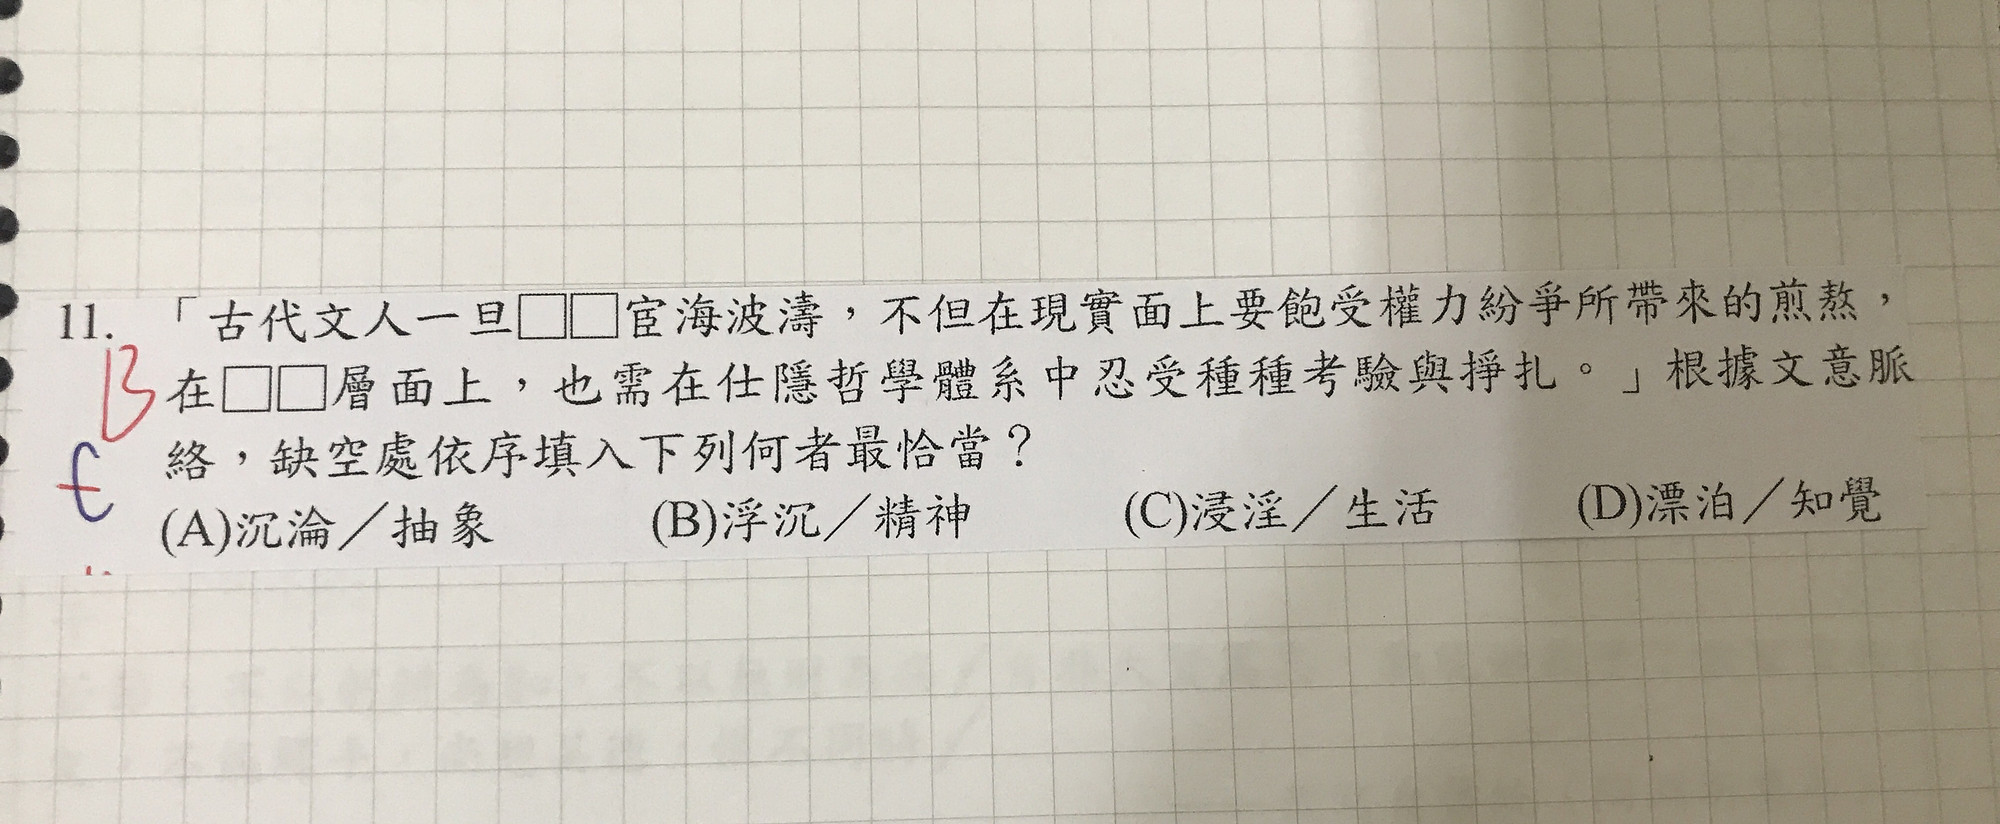 11. 「古代文人一旦□□宦海波濤，不但在現實面上要飽受權力紛爭所帶來的煎熬，
B 在□□層面上，也需在仕隱哲學體系中忍受種種考驗與掙扎。」根據文意脈
絡，缺空處依序填入下列何者最恰當？
(A)沉淪／抽象 (B)浮沉／精神 (C)浸淫／生活 (D)漂泊／知覺